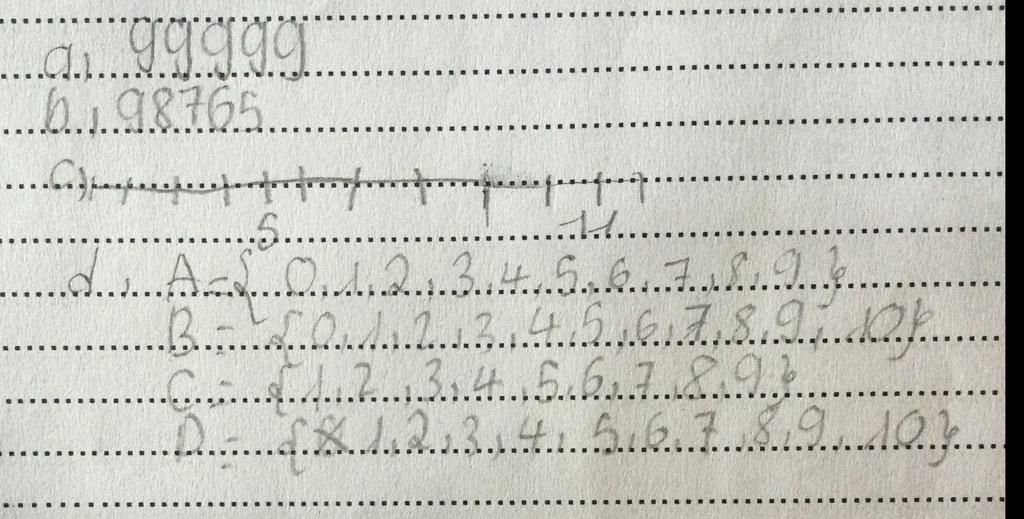 a, 99999
b, 98765
c,
5 11
d, A={0,1,2,3,4,5,6,7,8,9}
B={0,1,2,3,4,5,6,7,8,9,10}
C={1,2,3,4,5,6,7,8,9}
D={1,2,3,4,5,6,7,8,9,10}